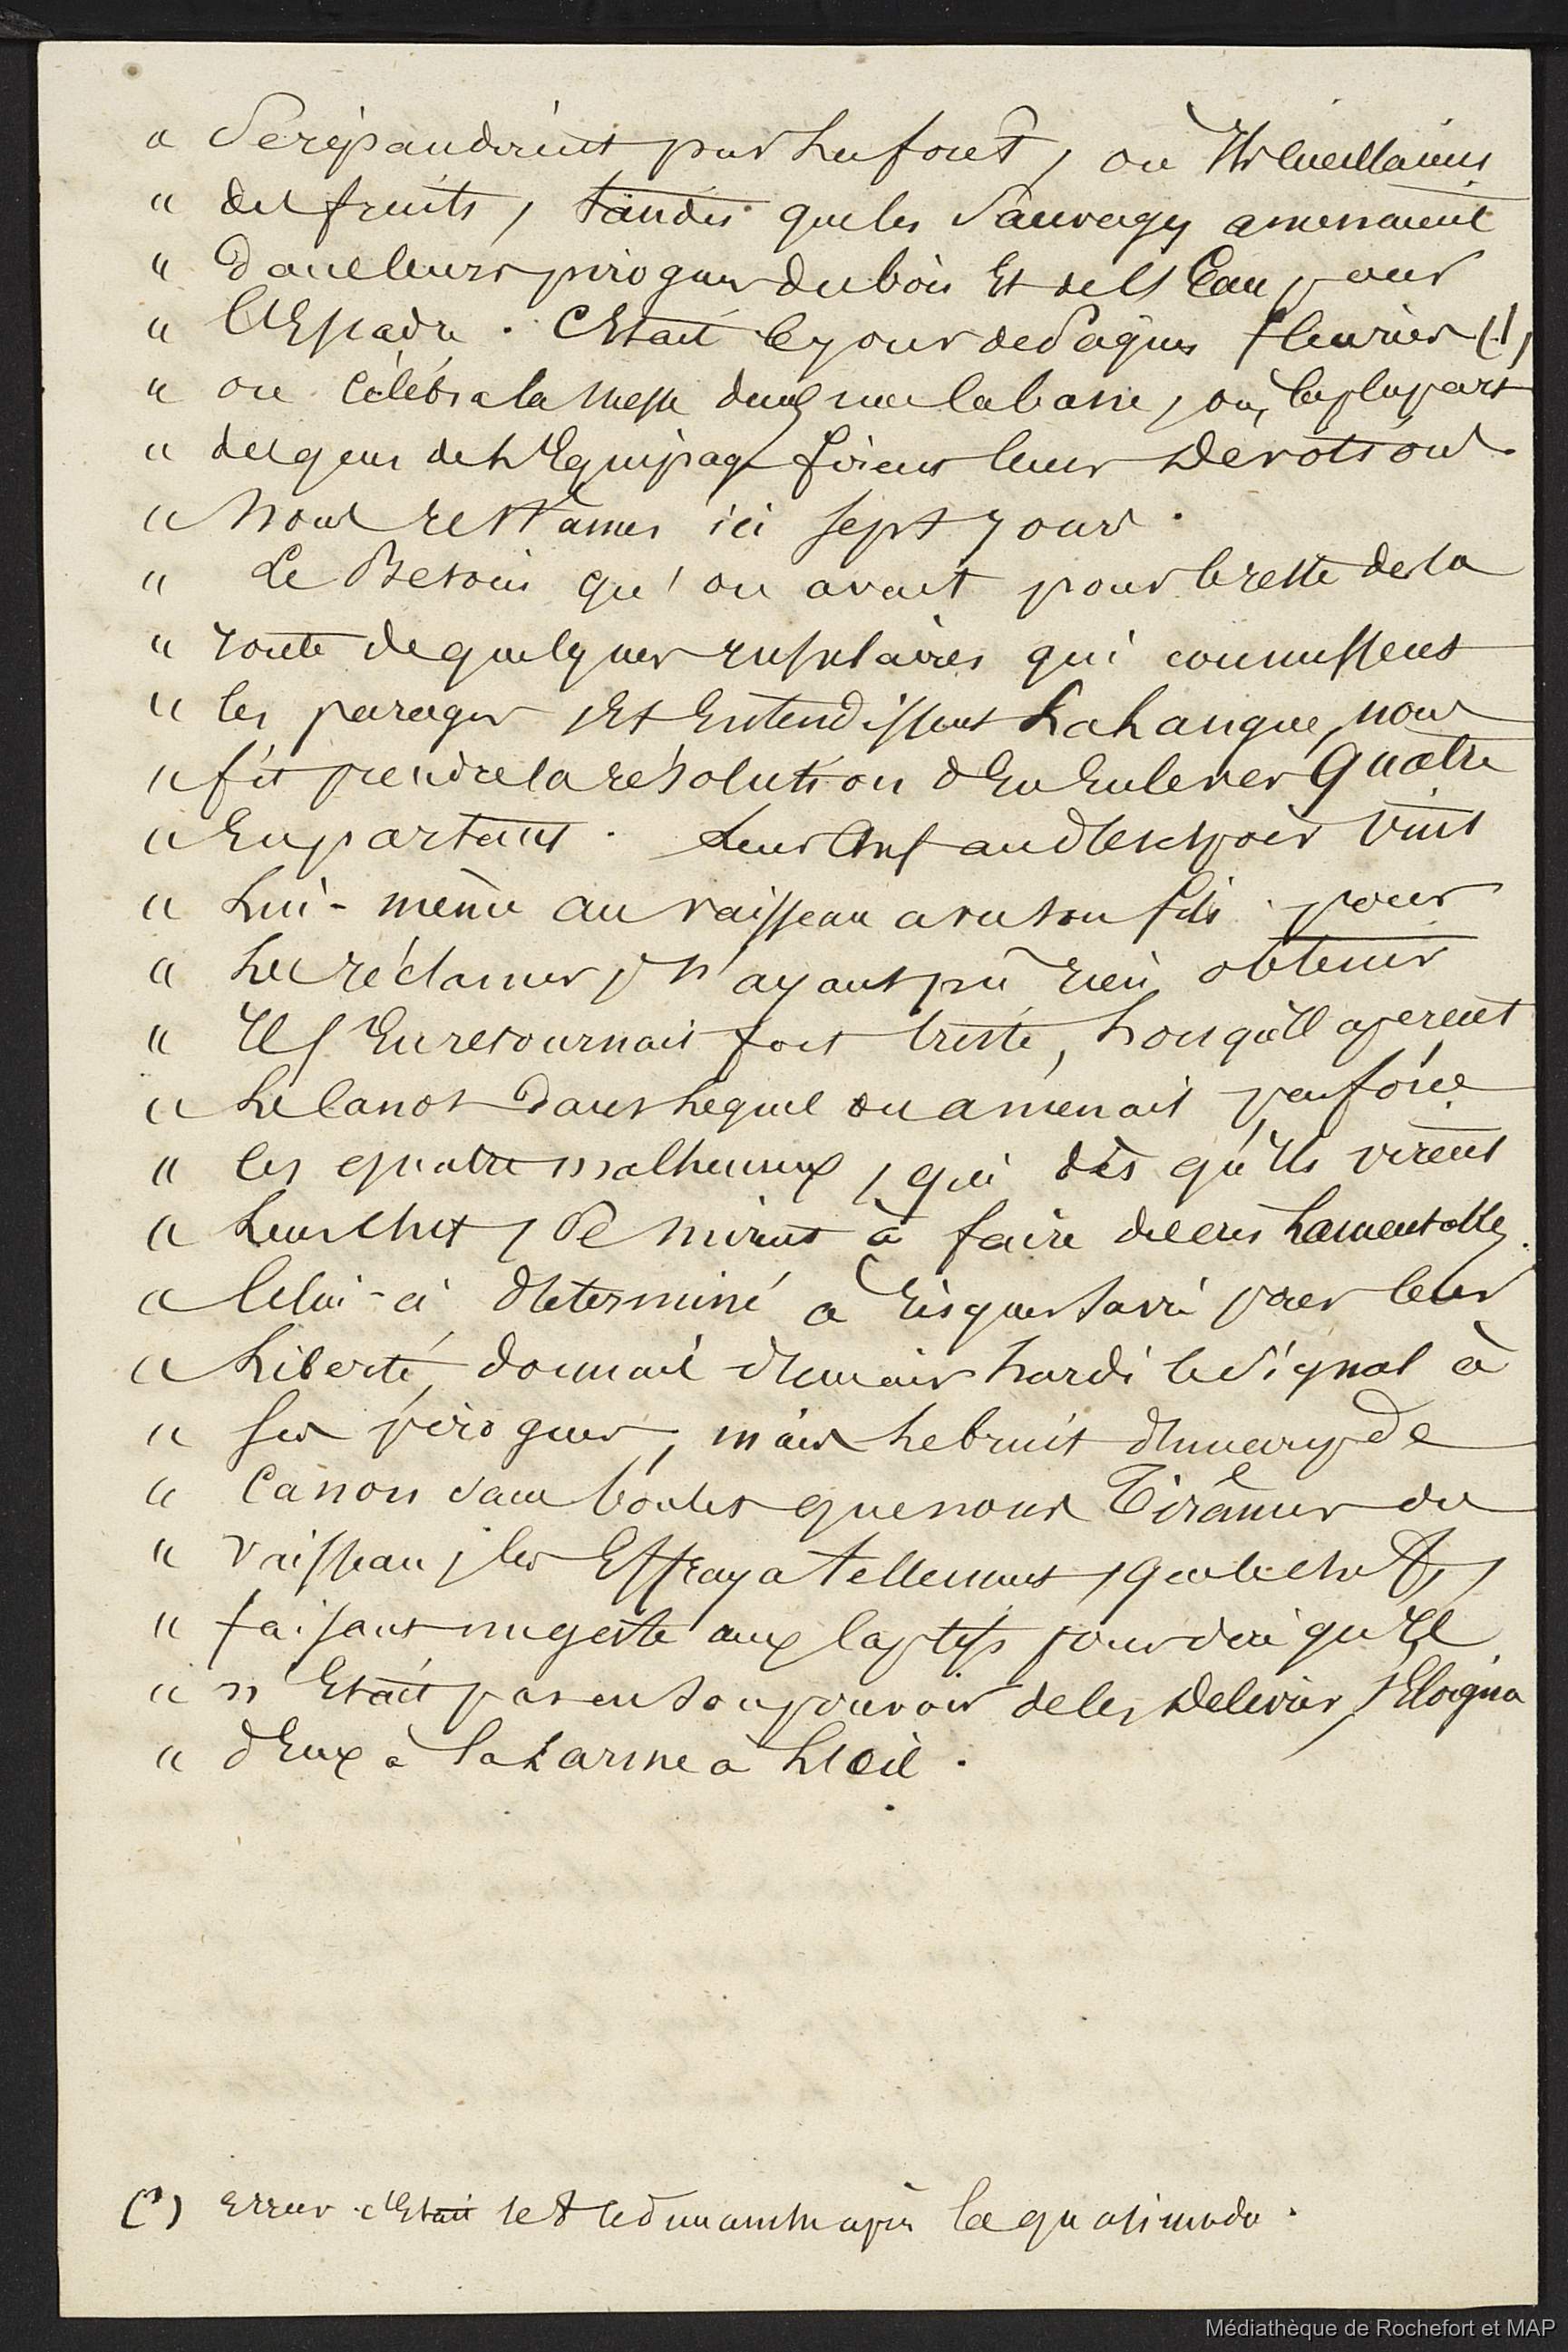 " Se répandirent par la foret, où Ils cueillaient
" des fruits, tandis que les Sauvages amenaient
" dans leurs pirogues du bois Et de l'Eau pour
" l'Escadre. C'Etait le jour de Pâques fleuries (1)
" on célébra la messe dans une cabane, où la plupart
" des gens de l'Equipage firent leurs Dévotions.
" Nous restâmes ici sept jours.
" Le Besoin qu'on avait pour le reste de la
" route de quelques insulaires qui connussent
" les parages Et Entendissent La Langue, nous
" fit prendre la résolution d'En Enlever Quatre
" En partant. Leur Chef au désespoir vint
" Lui-même au vaisseau avec son fils pour
" Les réclamer, N'ayant pû rien obtenir
" Il s'En retournait fort triste, Lorsqu'Il aperçut
" Le Canot dans Lequel on amenait par force
" les quatre malheureux, qui dès qu'Ils virent
" Leur Chef, Se mirent à faire des cris Lamentables.
" Celui-ci déterminé à risquer sa vie pour leur
" Liberté, donnait d'un air hardi le Signal à
" ses pirogues, mais Le bruit d'un coup De
" Canon sans boulet que nous Tirâmes du
" vaisseau, les Effraya tellement, que le chef,
" faisant un geste aux captifs pour dire qu'Il
" n'Etait pas en son pouvoir de les Délivrer, s'Eloigna
" d'Eux à La Larme à L'Oeil.
(1) Erreur c'Etait le 8 le dimanche après la quasimodo.
Médiathèque de Rochefort et MAP